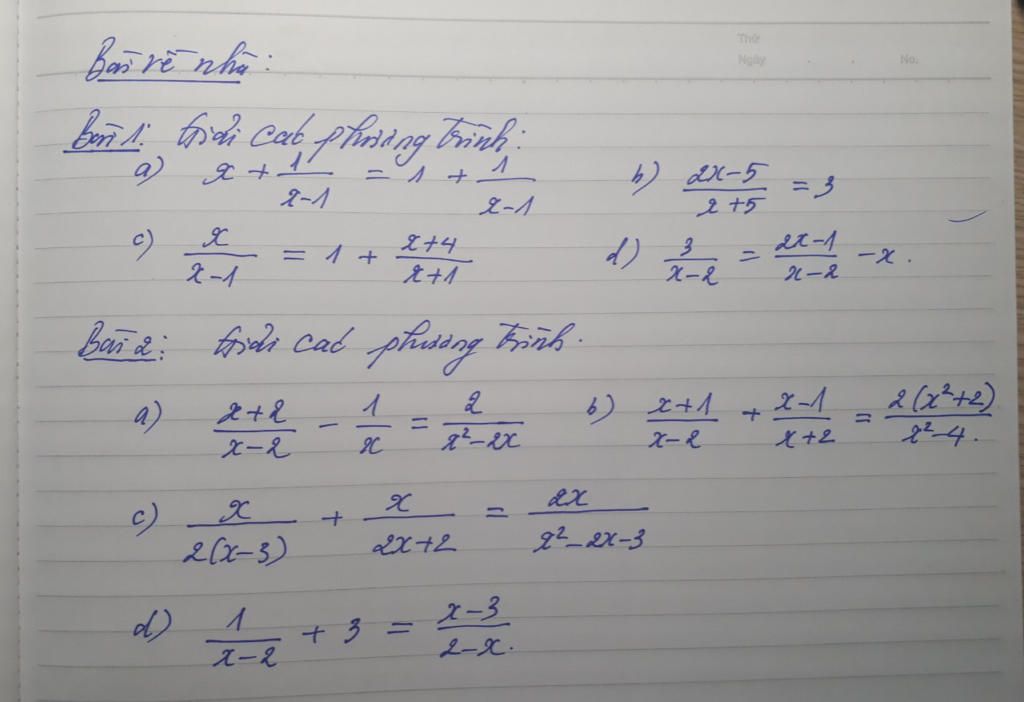 Thứ
Ngày . . No.
Bài về nhà:
Bài 1: Giải các phương trình:
a) x + 1/(x-1) = 1 + 1/(x-1) b) (2x-5)/(x+5) = 3
c) x/(x-1) = 1 + (x+4)/(x+1) d) 3/(x-2) = (2x-1)/(x-2) - x.
Bài 2: Giải các phương trình.
a) (x+2)/(x-2) - 1/x = 2/(x²-2x) b) (x+1)/(x-2) + (x-1)/(x+2) = 2(x²+2)/(x²-4).
c) x/(2(x-3)) + x/(2x+2) = 2x/(x²-2x-3)
d) 1/(x-2) + 3 = (x-3)/(2-x).